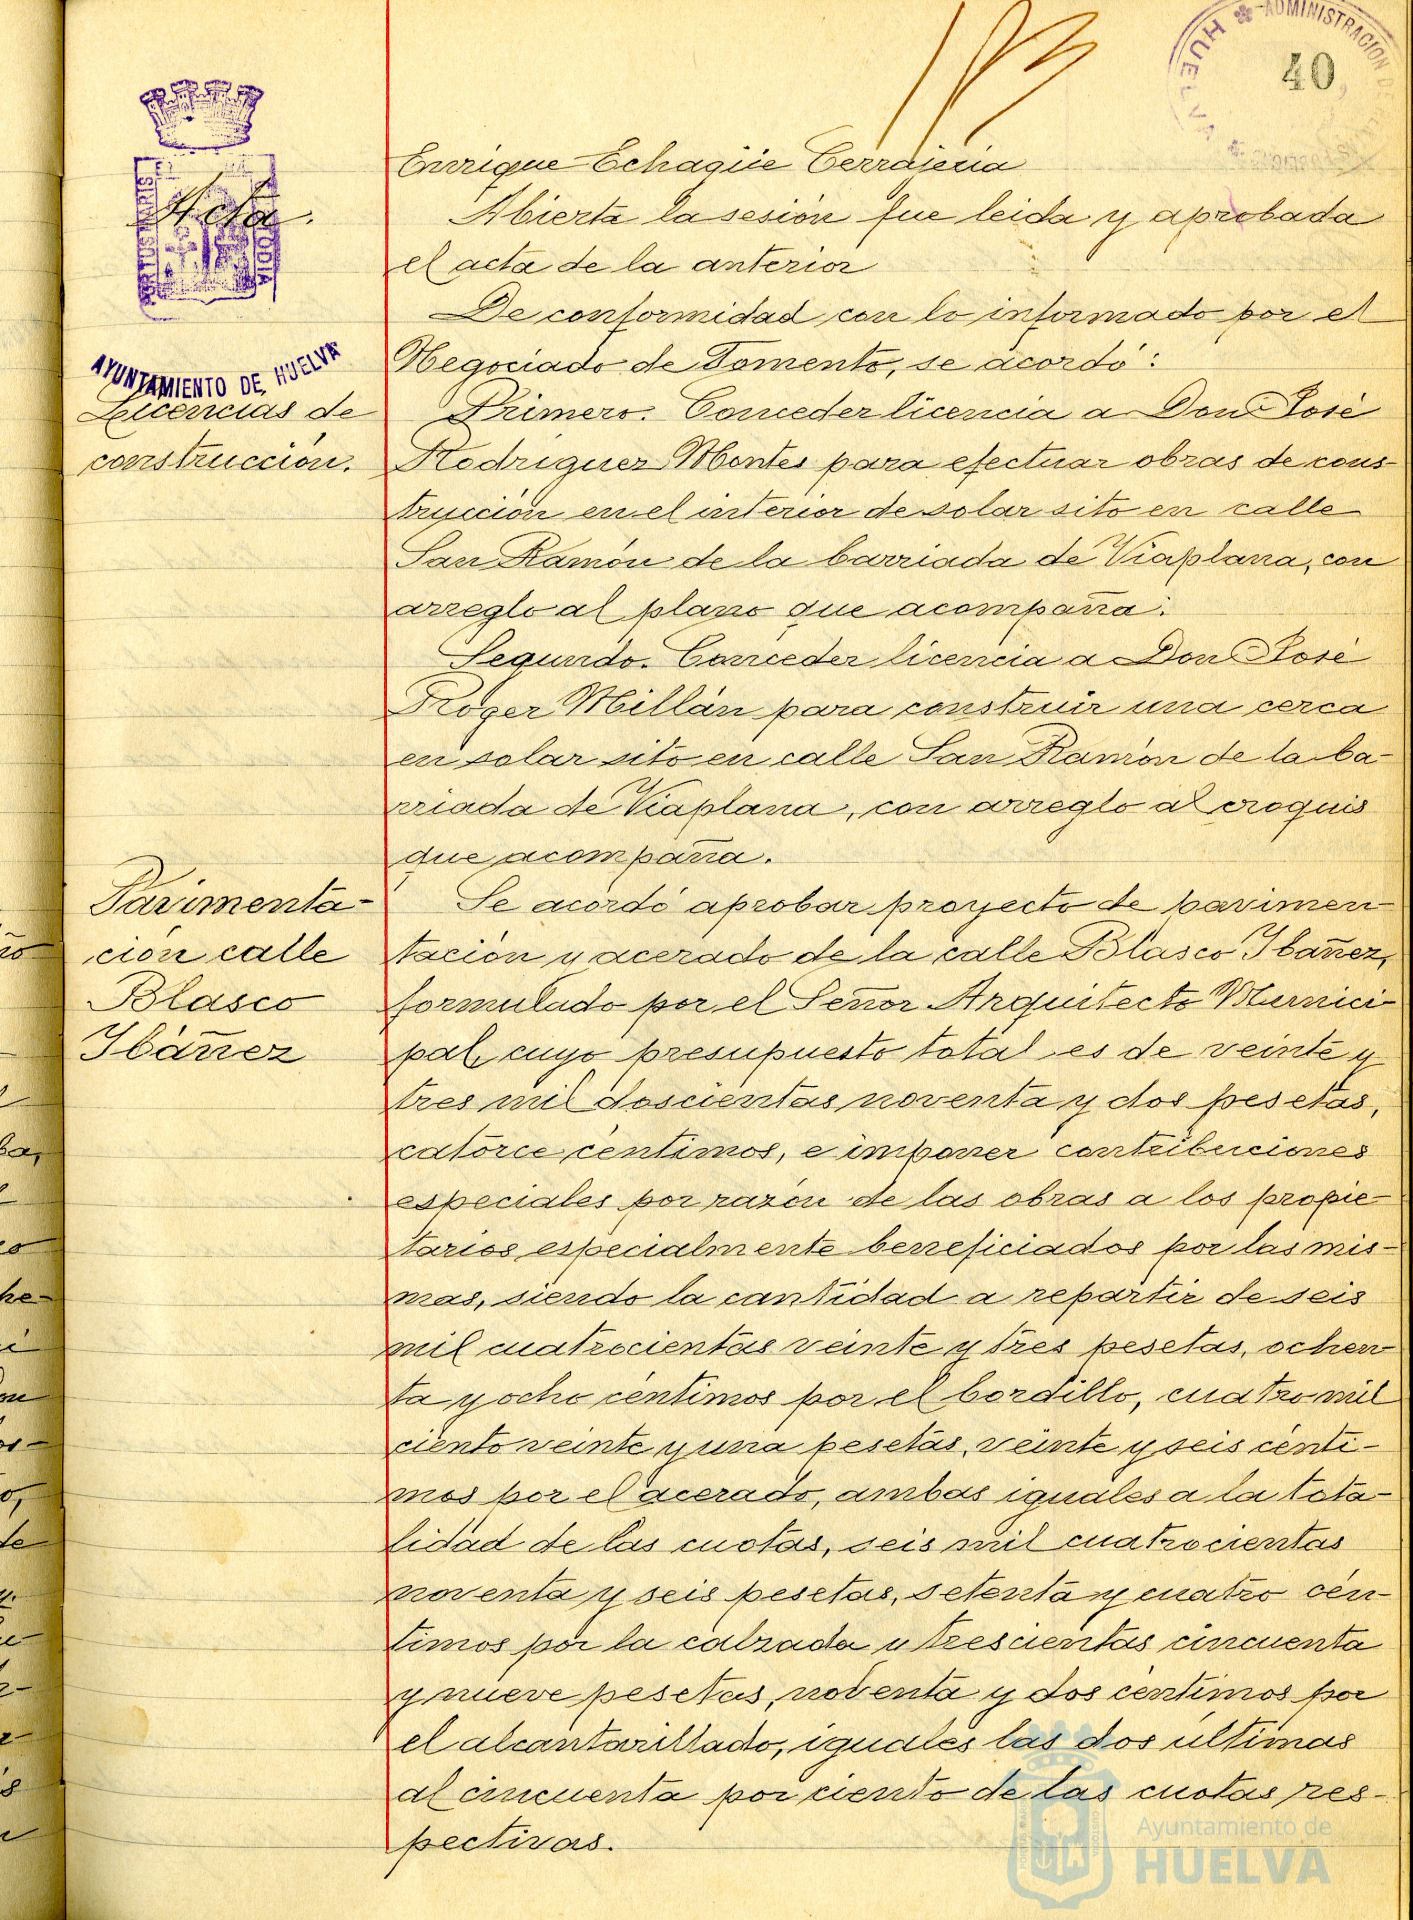 ADMINISTRACION DE
HUELVA
40
Enrique Echagüe Cerrajeria
Acta.
PORTUS MARIS
CUSTODIA
Abierta la sesión fue leida y aprobada
el acta de la anterior
De conformidad con lo informado por el
Negociado de Fomento, se acordó:
AYUNTAMIENTO DE HUELVA
Licencias de
construcción.
Primero. Conceder licencia a Don José
Rodriguez Montes para efectuar obras de cons-
trucción en el interior de solar sito en calle
San Ramón de la barriada de Viaplana, con
arreglo al plano que acompaña.
Segundo. Conceder licencia a Don José
Roger Millán para construir una cerca
en solar sito en calle San Ramón de la ba-
rriada de Viaplana, con arreglo al croquis
que acompaña.
Pavimenta-
ción calle
Blasco
Ibáñez
Se acordó aprobar proyecto de pavimen-
tación y acerado de la calle Blasco Ibañez,
formulado por el Señor Arquitecto Munici-
pal, cuyo presupuesto total es de veinte y
tres mil doscientas noventa y dos pesetas,
catorce céntimos, e imponer contribuciones
especiales por razón de las obras a los propie-
tarios especialmente beneficiados por las mis-
mas, siendo la cantidad a repartir de seis
mil cuatrocientas veinte y tres pesetas, ochen-
ta y ocho céntimos por el bordillo, cuatro mil
ciento veinte y una pesetas, veinte y seis cénti-
mos por el acerado, ambas iguales a la tota-
lidad de las cuotas, seis mil cuatrocientas
noventa y seis pesetas, setenta y cuatro cén-
timos por la calzada y trescientas cincuenta
y nueve pesetas, noventa y dos céntimos por
el alcantarillado, iguales las dos últimas
al cincuenta por ciento de las cuotas res-
pectivas.
Ayuntamiento de
HUELVA